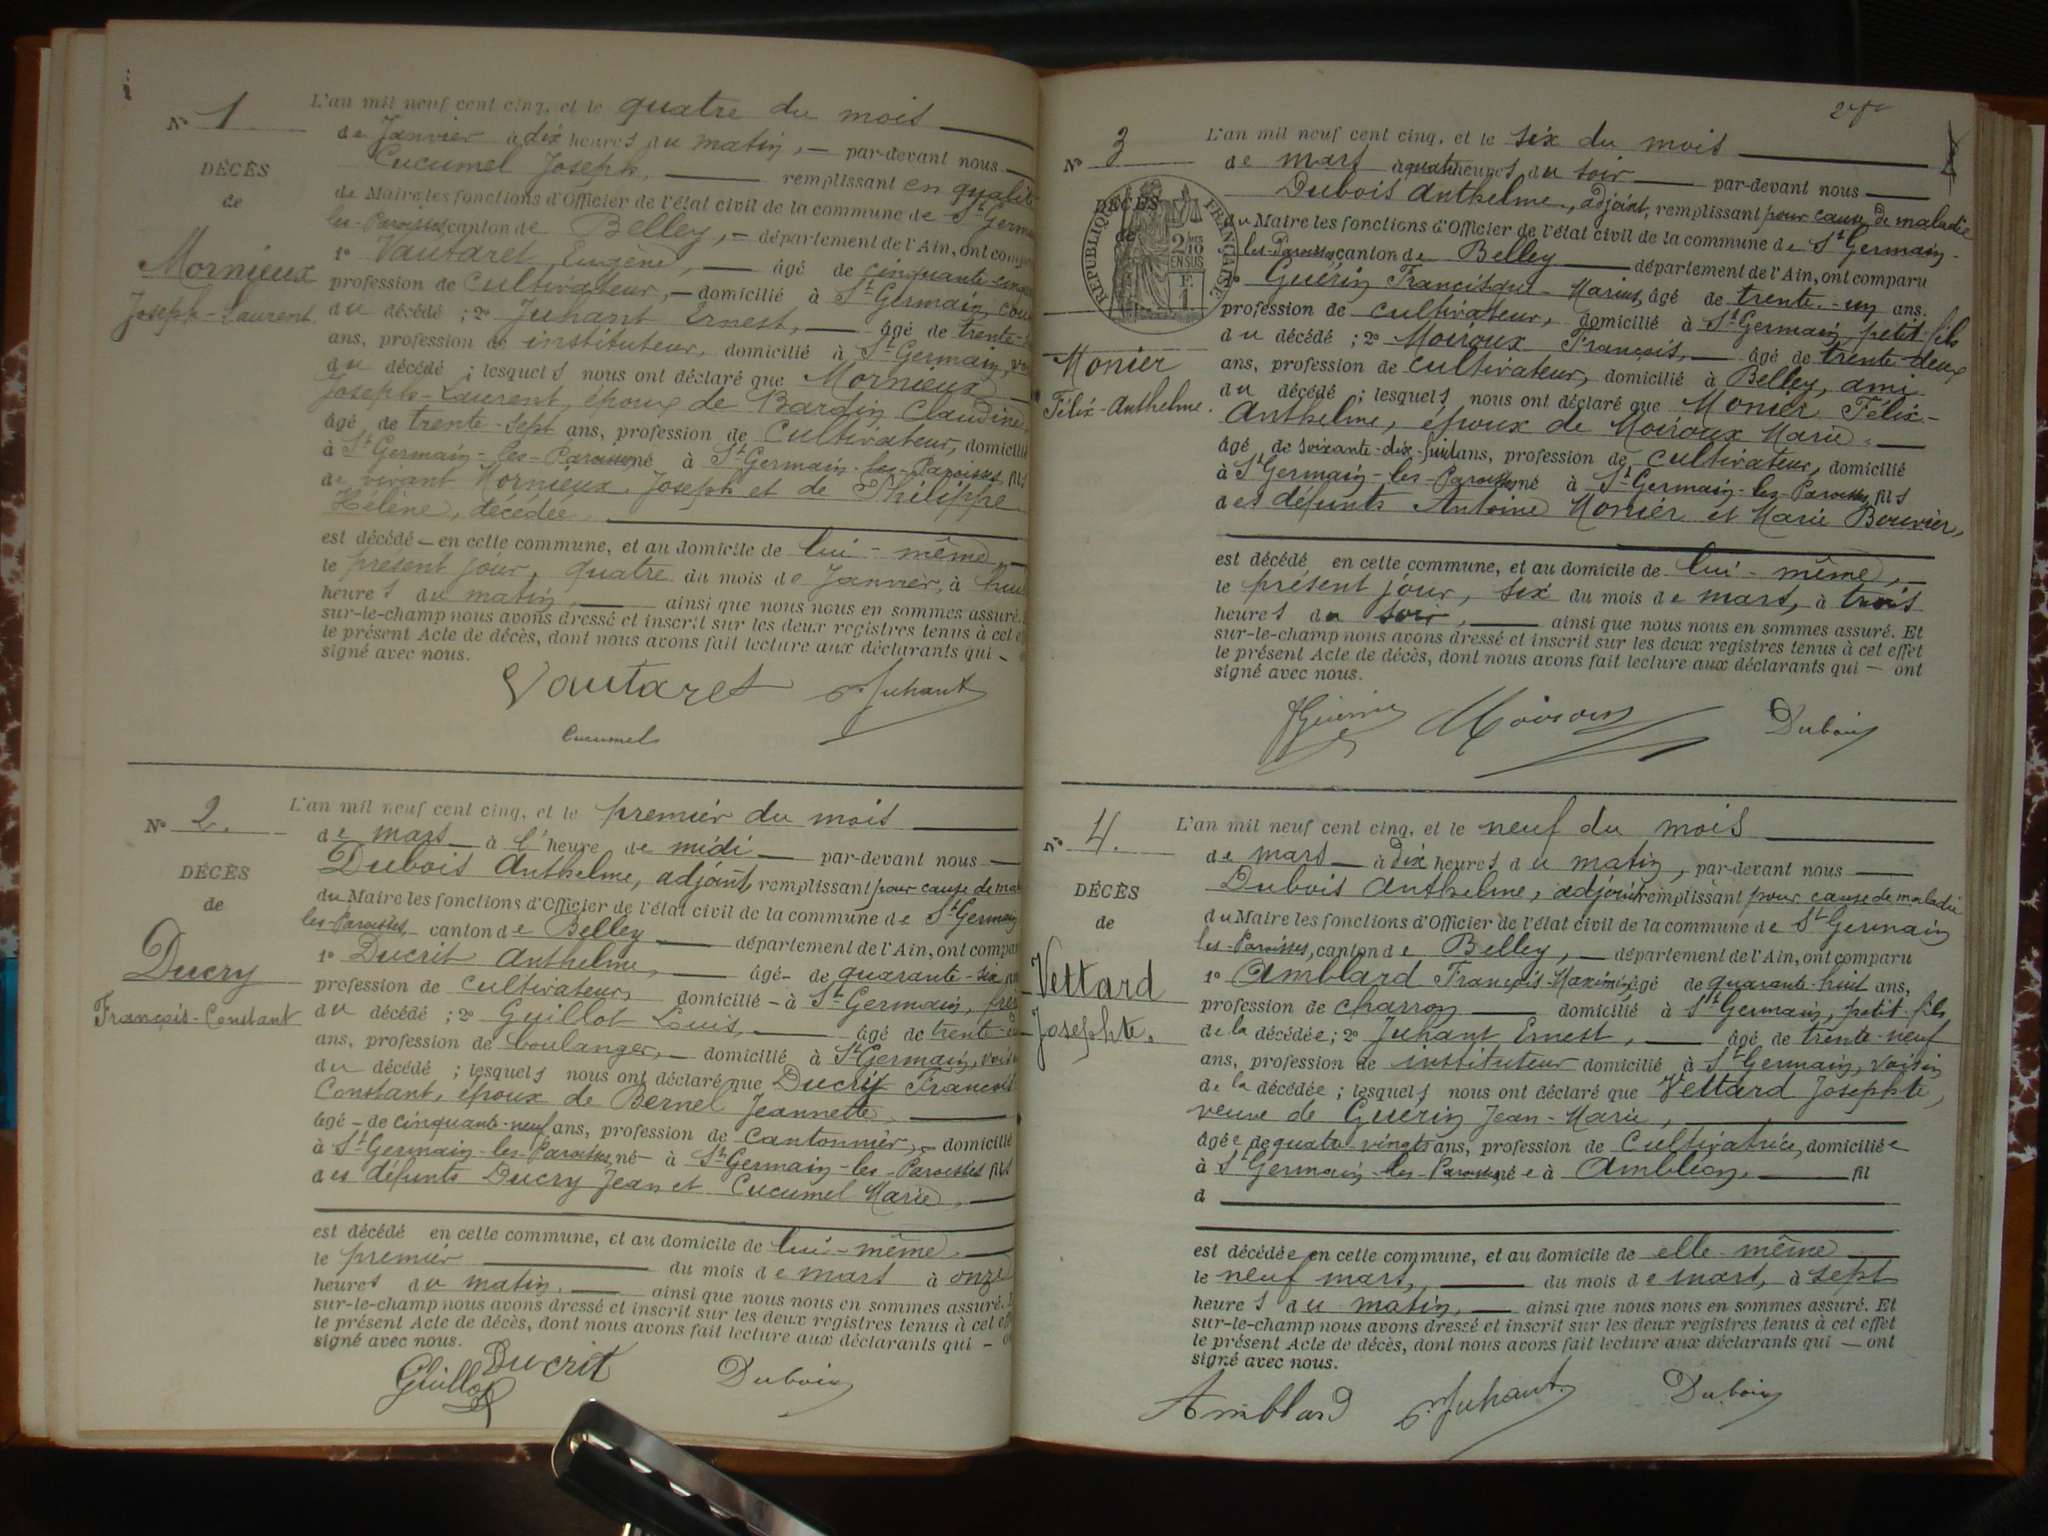 N° 1
DÉCÈS
de
Mornieux
Joseph-Laurent.
L'an mil neuf cent cinq, et le quatre du mois
de Janvier à dix heures du matin, par-devant nous
Cucumel Joseph, remplissant en qualité
de Maire les fonctions d'Officier de l'état civil de la commune de St Germain
les-Paroisses canton de Belley, département de l'Ain, ont comparu
1° Vautaret Eugène, âgé de cinquante
profession de cultivateur, domicilié à St Germain,
du décédé ; 2° Juhant Ernest, âgé de trente
ans, profession de instituteur, domicilié à St Germain,
du décédé ; lesquels nous ont déclaré que Mornieux
Joseph-Laurent, époux de Bardin Claudine
âgé de trente-sept ans, profession de cultivateur, domicilié
à St Germain-les-Paroisses né à St Germain-les-Paroisses fils
de vivant Mornieux Joseph et de Philippe
Hélène, décédée.
est décédé en cette commune, et au domicile de lui-même,
le présent jour, quatre du mois de Janvier, à
heures du matin, ainsi que nous nous en sommes assuré.
sur-le-champ nous avons dressé et inscrit sur les deux registres tenus à cet
le présent Acte de décès, dont nous avons fait lecture aux déclarants qui
signé avec nous.
Vautaret Juhant
Cucumel
N° 2.
DÉCÈS
de
Ducry
François-Constant
L'an mil neuf cent cinq, et le premier du mois
de mars à l'heure de midi par-devant nous
Dubois Anthelme, adjoint, remplissant pour cause de
du Maire les fonctions d'Officier de l'état civil de la commune de St Germain
les-Paroisses canton de Belley département de l'Ain, ont comparu
1° Ducrit Anthelme, âgé de quarante-six
profession de cultivateur domicilié à St Germain,
du décédé ; 2° Guillot Louis, âgé de trente
ans, profession de boulanger, domicilié à St Germain,
du décédé ; lesquels nous ont déclaré que Ducry François
Constant, époux de Bernel Jeannette,
âgé de cinquante-neuf ans, profession de cantonnier, domicilié
à St Germain-les-Paroisses né à St Germain-les-Paroisses fils
des défunts Ducry Jean et Cucumel Marie,
est décédé en cette commune, et au domicile de lui-même
le premier du mois de mars à onze
heures du matin, ainsi que nous nous en sommes assuré.
sur-le-champ nous avons dressé et inscrit sur les deux registres tenus à cet
le présent Acte de décès, dont nous avons fait lecture aux déclarants qui
signé avec nous.
Guillot Ducrit Dubois
N° 3
DÉCÈS
de
RÉPUBLIQUE FRANÇAISE
Monier
Félix-Anthelme.
L'an mil neuf cent cinq, et le six du mois
de mars à quatre heures du soir par-devant nous
Dubois Anthelme, adjoint, remplissant pour cause de maladie
du Maire les fonctions d'Officier de l'état civil de la commune de St Germain-
les-Paroisses, canton de Belley département de l'Ain, ont comparu
1° Guérin Francisque-Marius, âgé de trente-un ans,
profession de cultivateur, domicilié à St Germain, petit-fils
du décédé ; 2° Moiroux François, âgé de trente-deux
ans, profession de cultivateur, domicilié à Belley, ami
du décédé ; lesquels nous ont déclaré que Monier Félix-
Anthelme, époux de Moiroux Marie.
âgé de soixante-dix-huit ans, profession de cultivateur, domicilié
à St Germain-les-Paroisses né à St Germain-les-Paroisses, fils
des défunts Antoine Monier et Marie Bouvier,
est décédé en cette commune, et au domicile de lui-même,
le présent jour, six du mois de mars, à trois
heures du soir, ainsi que nous nous en sommes assuré. Et
sur-le-champ nous avons dressé et inscrit sur les deux registres tenus à cet effet
le présent Acte de décès, dont nous avons fait lecture aux déclarants qui ont
signé avec nous.
Guérin Moiroux Dubois
N° 4.
DÉCÈS
de
Vettard
Josephte.
L'an mil neuf cent cinq, et le neuf du mois
de mars à dix heures du matin, par-devant nous
Dubois Anthelme, adjoint remplissant pour cause de maladie
du Maire les fonctions d'Officier de l'état civil de la commune de St Germain
les-Paroisses, canton de Belley, département de l'Ain, ont comparu
1° Amblard François-Maximin, âgé de quarante-huit ans,
profession de charron domicilié à St Germain, petit-fils
de la décédée ; 2° Juhant Ernest, âgé de trente-neuf
ans, profession de instituteur domicilié à St Germain, voisin
de la décédée ; lesquels nous ont déclaré que Vettard Josephte,
veuve de Guérin Jean-Marie,
âgée de quatre vingts ans, profession de cultivatrice, domiciliée
à St Germain-les-Paroisses, née à Ambléon, fil
d
est décédée en cette commune, et au domicile de elle même
le neuf mars, du mois de mars, à sept
heures du matin, ainsi que nous nous en sommes assuré. Et
sur-le-champ nous avons dressé et inscrit sur les deux registres tenus à cet effet
le présent Acte de décès, dont nous avons fait lecture aux déclarants qui ont
signé avec nous.
Amblard Juhant Dubois